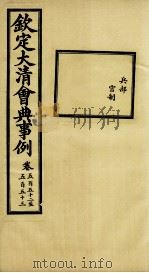 欽定大清會典事例
卷
五百五十二至
五百五十三
兵部
官制
mtoou.info